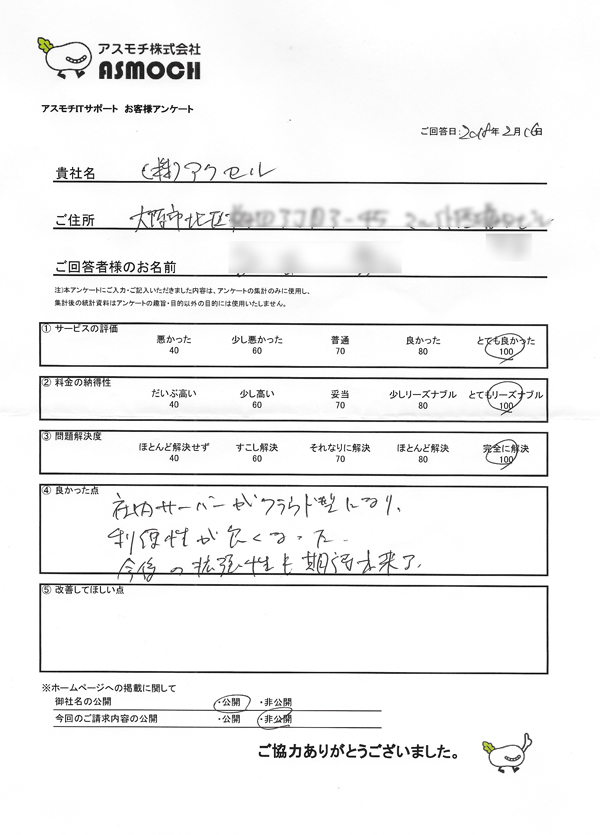 アスモチ株式会社
ASMOCH
アスモチITサポート お客様アンケート
ご回答日:2018年2月16日
貴社名 (株)アクセル
ご住所 大阪市北区
ご回答者様のお名前
注)本アンケートにご入力・ご記入いただきました内容は、アンケートの集計のみに使用し、
集計後の統計資料はアンケートの趣旨・目的以外の目的には使用いたしません。
① サービスの評価
悪かった 少し悪かった 普通 良かった とても良かった
40 60 70 80 100
② 料金の納得性
だいぶ高い 少し高い 妥当 少しリーズナブル とてもリーズナブル
40 60 70 80 100
③ 問題解決度
ほとんど解決せず すこし解決 それなりに解決 ほとんど解決 完全に解決
40 60 70 80 100
④ 良かった点
社内サーバーがクラウド型になり、
利便性が良くなった.
今後の拡張性も期待出来る.
⑤ 改善してほしい点
※ホームページへの掲載に関して
御社名の公開 ・公開 ・非公開
今回のご請求内容の公開 ・公開 ・非公開
ご協力ありがとうございました。